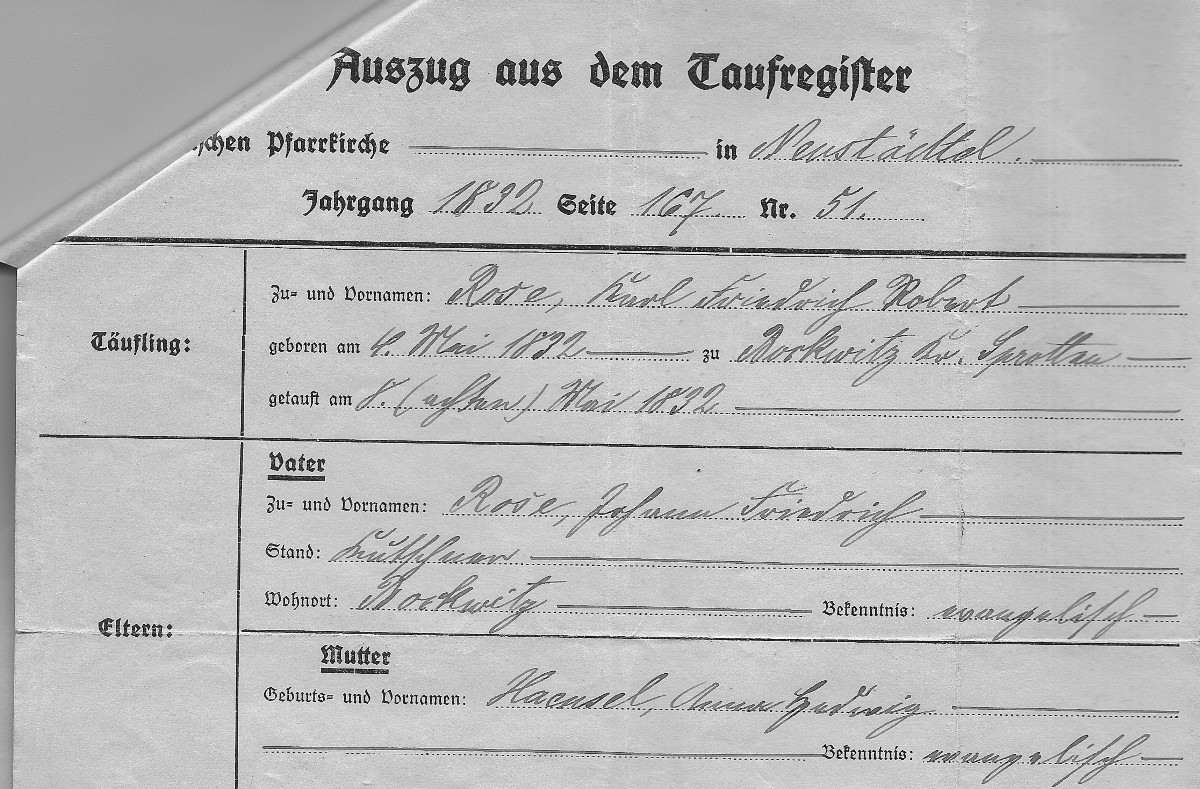 Auszug aus dem Taufregister
schen Pfarrkirche in Neustädtel.
Jahrgang 1832 Seite 167. Nr. 51.
Täufling:
Zu- und Vornamen: Rose, Karl Friedrich Robert
geboren am 4. Mai 1832 zu Bockwitz Kr. Sprottau
getauft am 8. (achten) Mai 1832
Eltern:
Vater
Zu- und Vornamen: Rose, Johann Friedrich
Stand: Kutschner
Wohnort: Bockwitz Bekenntnis: evangelisch
Mutter
Geburts- und Vornamen: Haensel, Anna Hedwig
Bekenntnis: evangelisch